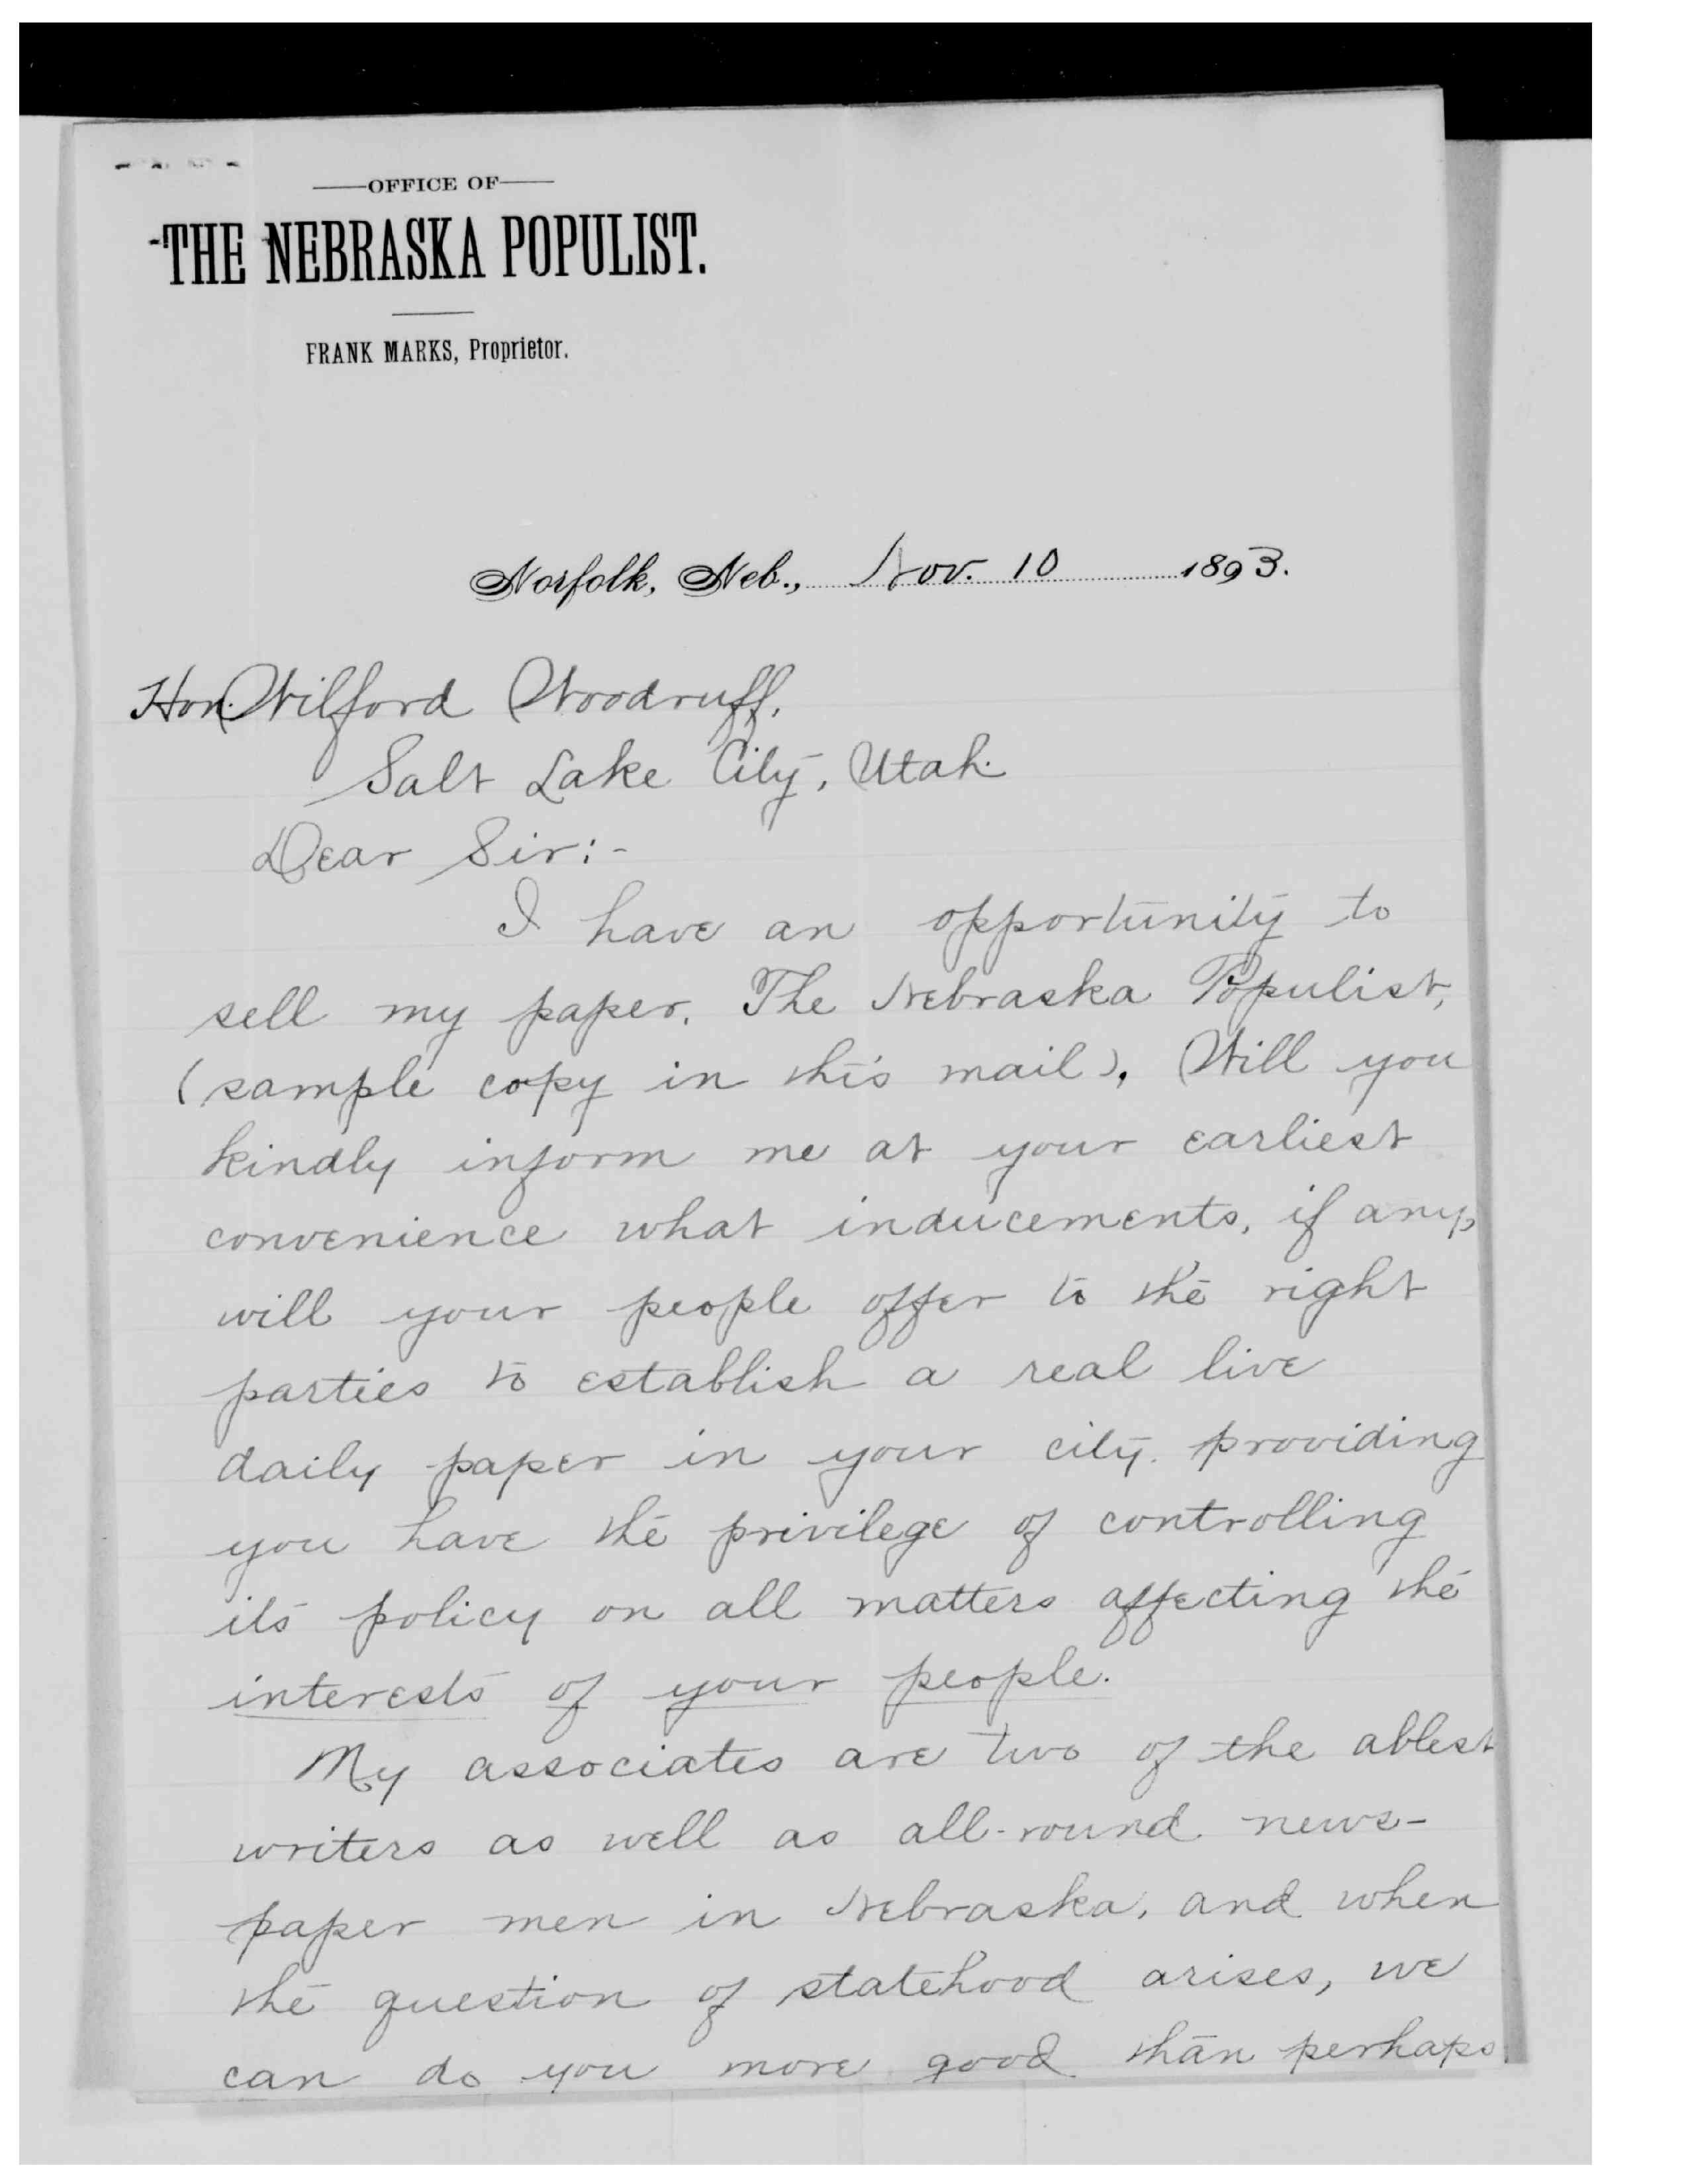 OFFICE OF
THE NEBRASKA POPULIST.
FRANK MARKS, Proprietor.
Norfolk, Neb., Nov. 10 1893.
Hon. Wilford Woodruff,
Salt Lake City, Utah.
Dear Sir:-
I have an opportunity to
sell my paper, The Nebraska Populist,
(sample copy in this mail). Will you
kindly inform me at your earliest
convenience what inducements, if any,
will your people offer to the right
parties to establish a real live
daily paper in your city, providing
you have the privilege of controlling
its policy on all matters affecting the
interests of your people.
My associates are two of the ablest
writers as well as all-round news-
paper men in Nebraska, and when
the question of statehood arises, we
can do you more good than perhaps